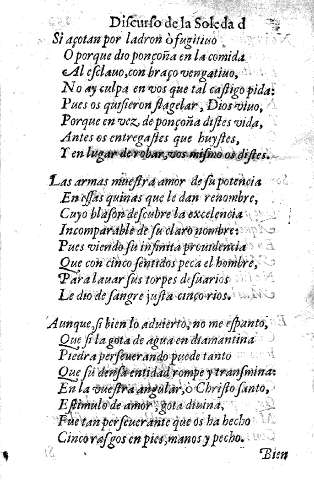 Discurso de la Soledad
Si açotan por ladron ò fugitiuo
O porque dio ponçoña en la comida
Al esclauo, con braço vengatiuo,
No ay culpa en vos que tal castigo pida:
Pues os quisieron flagelar, Dios viuo,
Porque en vez de ponçoña distes vida,
Antes os entregastes que huystes,
Y en lugar de robar, vos mismo os distes.
Las armas muestra amor de su potencia
En essas quinas que le dan renombre,
Cuyo blason descubre la excelencia
Incomparable de su claro nombre:
Pues viendo su infinita prouidencia
Que con cinco sentidos peca el hombre,
Para lauar sus torpes desuarios
Le dio de sangre justa cinco rios.
Aunque, si bien lo aduierto, no me espanto,
Que si la gota de agua en diamantina
Piedra perseuerando puede tanto
Que su densa entidad rompe y transmina:
En la vuestra angular, ò Christo santo,
Estimulo de amor, gota diuina,
Fue tan perseuerante que os ha hecho
Cinco rasgos en pies, manos y pecho.
Bien